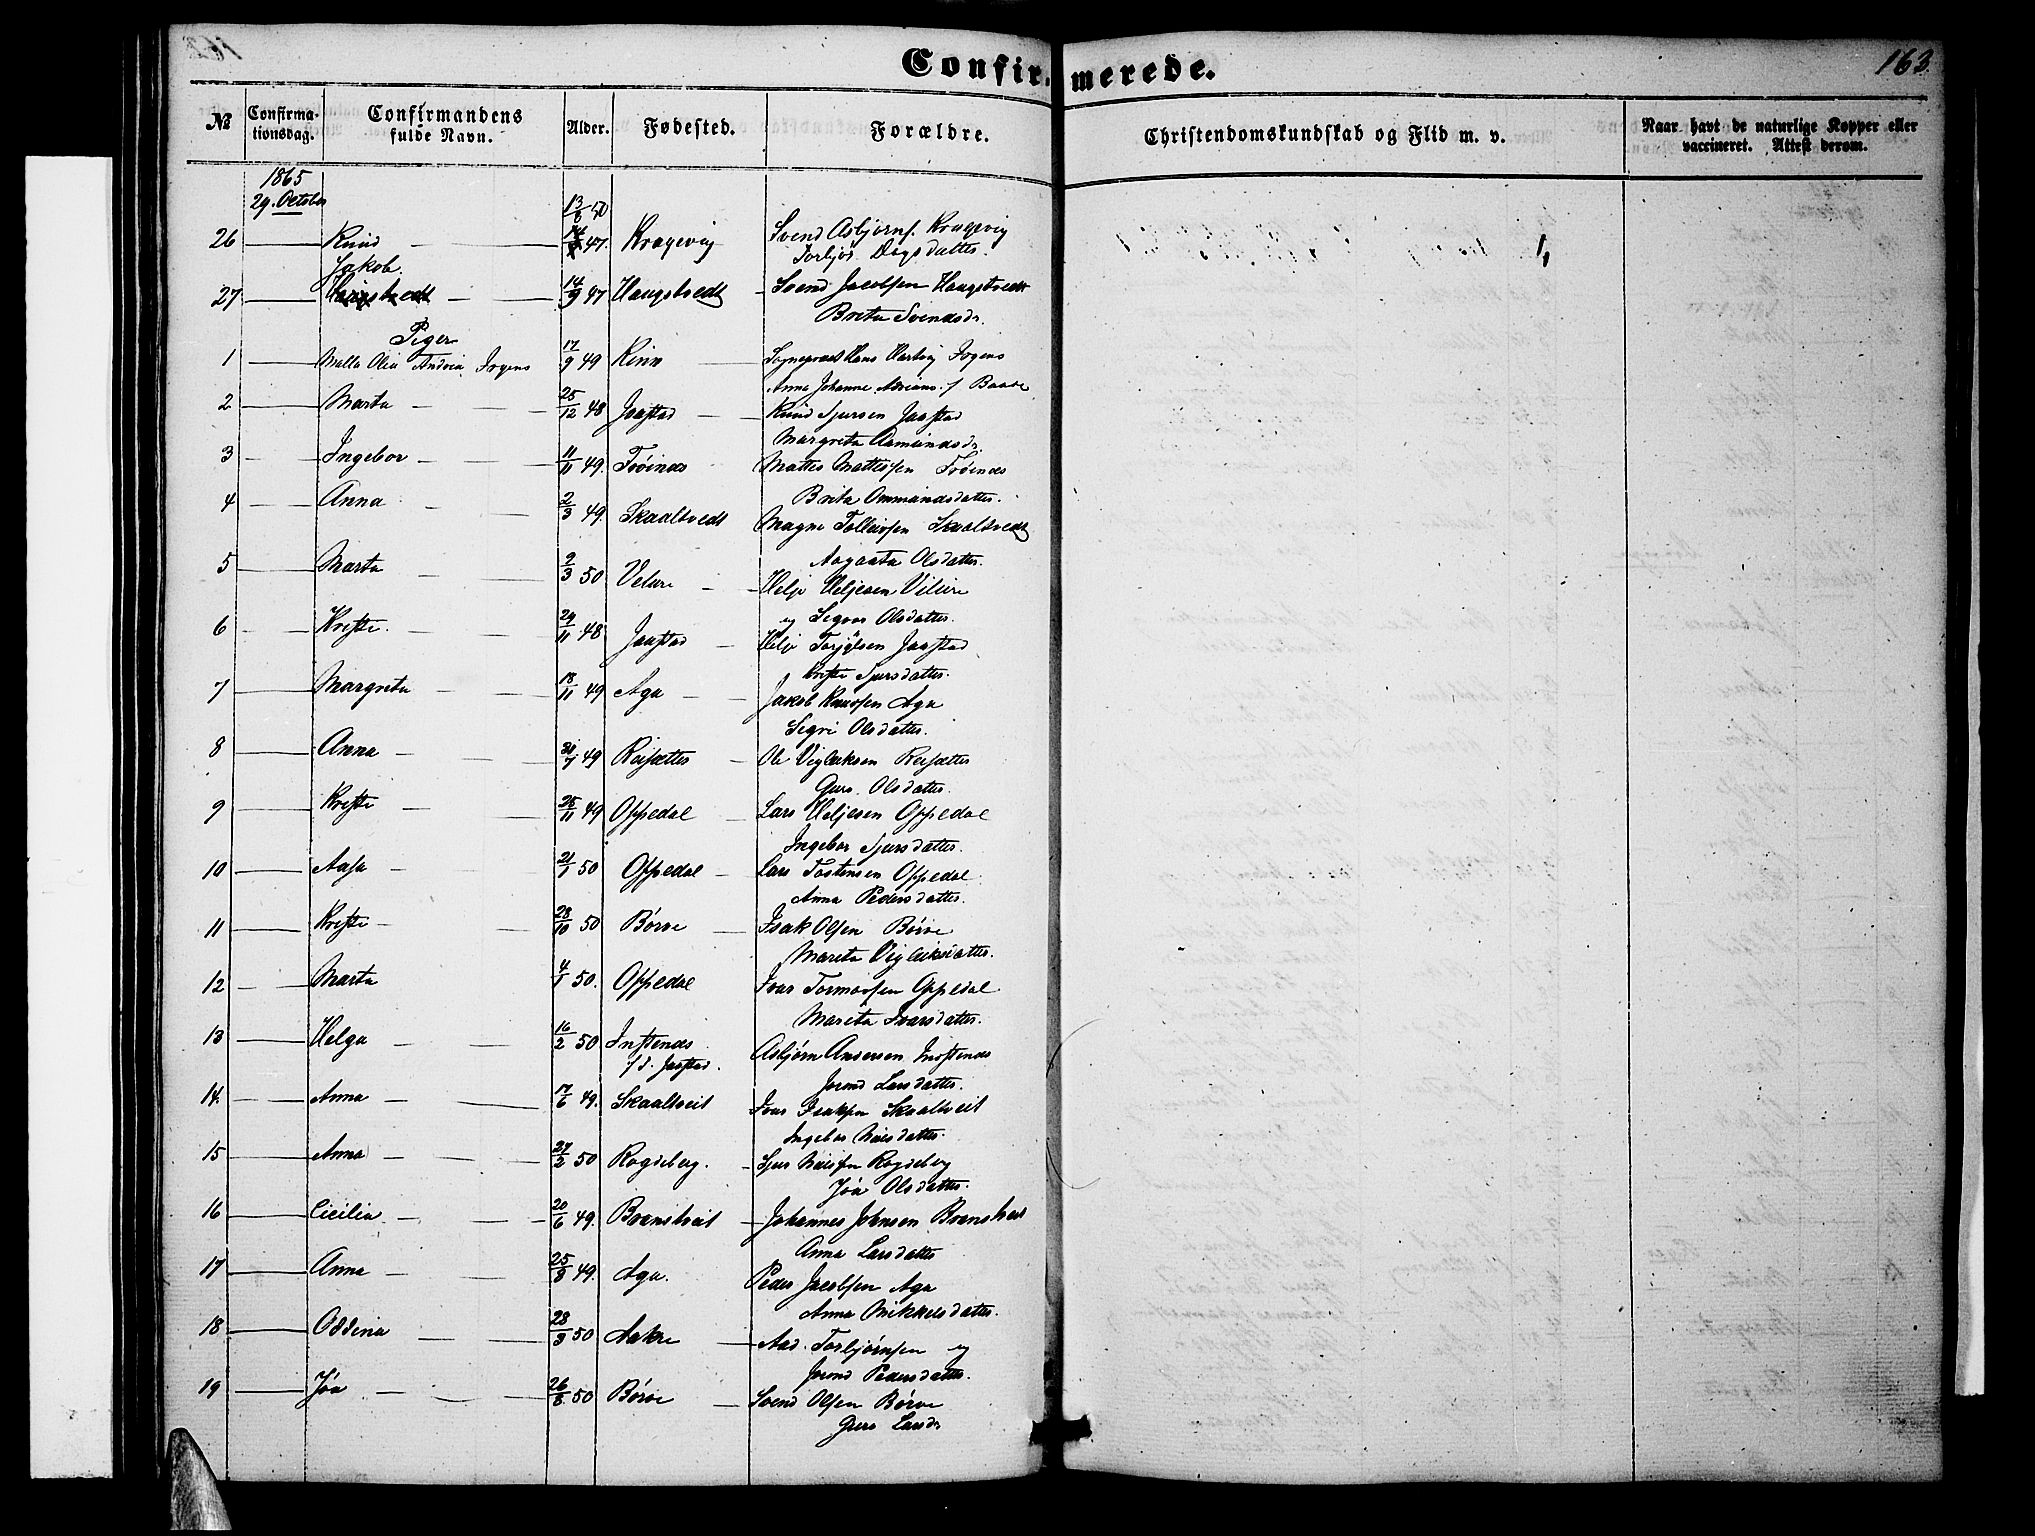 Confirmerede.
163.
№
Confirmationsdag.
Confirmandens fulde Navn.
Alder.
Fødested.
Forældre.
Christendomskundskab og Flid m. v.
Naar havt de naturlige Kopper eller vaccineret. Attest derom.
1865
29. October
13/8 50
26 Knud 14/8 47. Kragevig Svend Asbjørns. Kragevig
Torbjør Dagsdatter.
Jakob
27 Haugstvedt 14/9 47 Haugstvedt Svend Jacobsen Haugstvedt
Brita Svendsdr.
Piger
1 Malla Olea Andrea Irgens 17/9 49 Kinn Sognepræst Hans Hartvig Irgens
Anna Johanne Adriane f Baade
2 Marta 25/12 48 Jaastad Knud Sjursen Jaastad
Margreta Aamundsdr.
3 Ingebor 11/11 49. Frøines Mattes Mattessen Frøines
Brita Ommundsdatter.
4 Anna 2/3 49. Skaaltvedt Magne Tolleivsen Skaaltvedt
Aagaata Olsdatter.
5 Marta 2/3 50 Velure Helje Heljesen Velure
og Segvor Olsdatter.
6 Kriste 29/11 48 Jaastad Helje Torjølsen Jaastad
Kriste Sjursdatter.
7 Margreta 18/11 49 Aga Jakob Knudsen Aga
Segri Olsdatter.
8 Anna 30/1 49 Reisæter Ole Vigleiksen Reisæter
Guro Olsdatter.
9 Kriste 25/11 49 Oppedal Lars Heljesen Oppedal
Ingebor Sjursdatter.
10 Aasa 21/1 50 Oppedal Lars Tostensen Oppedal
Anna Pedersdatter.
11 Kriste 28/10 50 Børve Isak Olsen Børve
Mareta Vigleiksdatter.
12 Marta 4/1 50. Oppedal Ivar Tormodsen Oppedal
Mareta Ivarsdatter.
13 Helga 16/2 50 Instenes Asbjørn Andersen Instenes
f. d. Jaastad. Jorand Larsdatter.
14. Anna 17/6 49. Skaaltveit Ivar Isaksen Skaaltveit
Ingebor Nilsdatter.
15 Anna 27/2 50 Rogdeberg. Sjur Nilsen Rogdeberg
Jøa Olsdatter.
16 Cicilia 20/6 49. Branstveit Johannes Johnsen Branstveit
Anna Larsdatter
17 Anna 25/8 49. Aga. Peder Jacobsen Aga
Anna Mikkelsdatter.
18 Oddina 28/3 50 Aakre Aad. Torbjørnsen og
Jorand Pedersdatter.
19 Jøa 26/8 50 Børve Svend Olsen Børve
Guro Larsdr